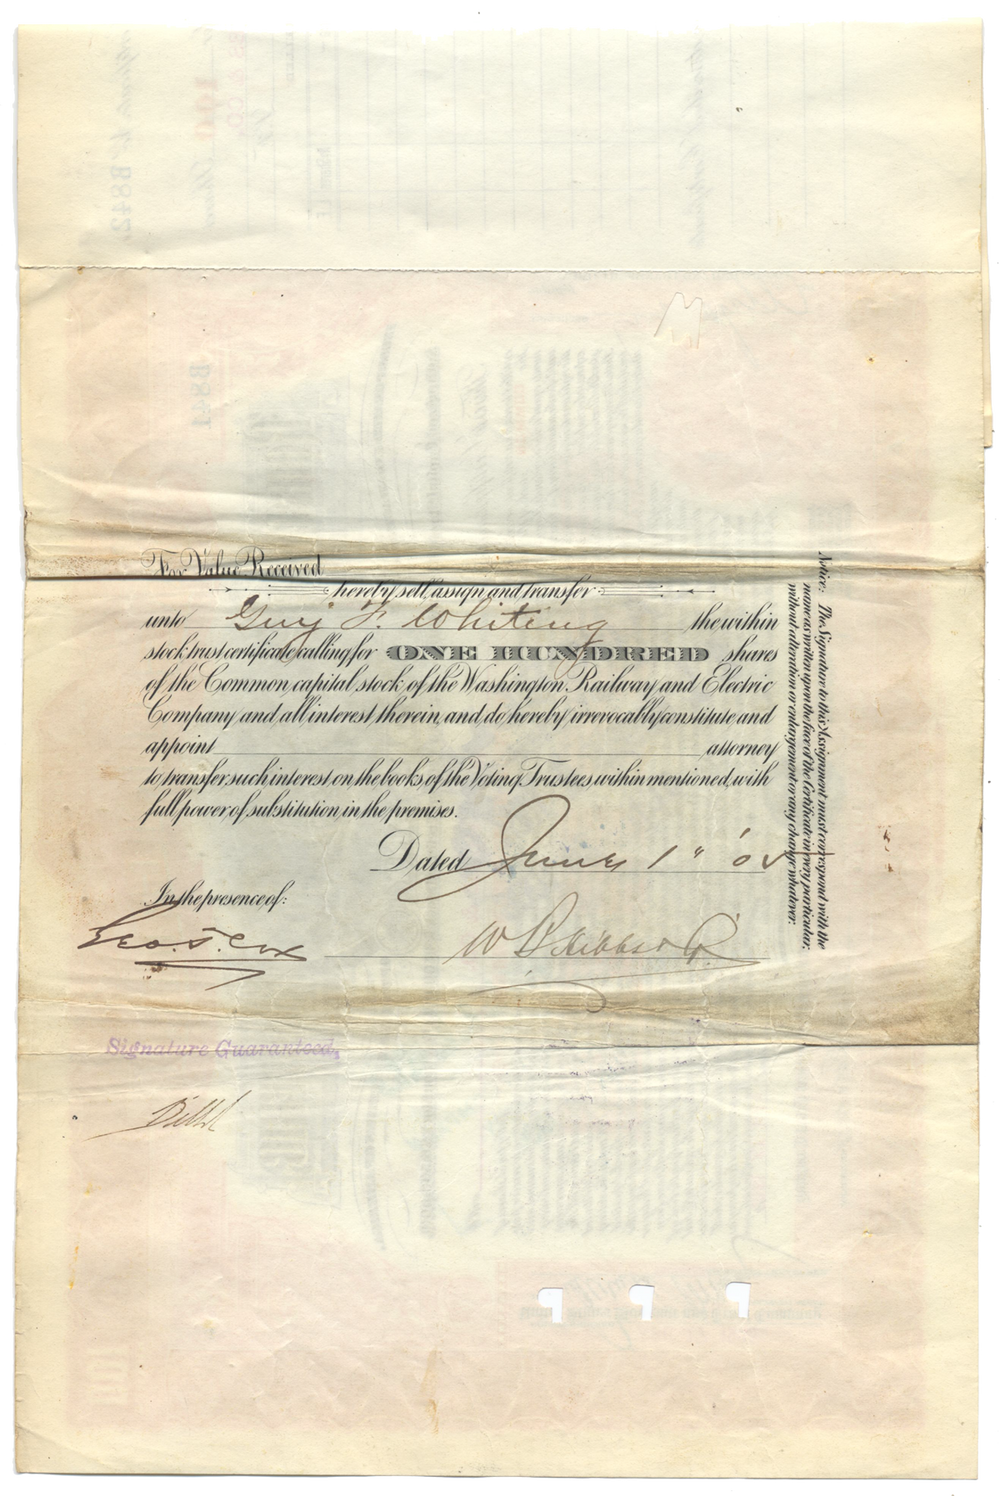 For Value Received
hereby sell, assign and transfer
unto Guy F. Whiting the within
stock trust certificate calling for ONE HUNDRED shares
of the Common capital stock of the Washington Railway and Electric
Company and all interest therein, and do hereby irrevocably constitute and
appoint attorney
to transfer such interest on the books of the Voting Trustees within mentioned, with
full power of substitution in the premises.
Dated June 1"
In the presence of:
Geo. S. Cox
W B Hibbs & Co.
Signature Guaranteed,
Notice: The Signature to this Assignment must correspond with the
name as written upon the face of the Certificate in every particular,
without alteration or enlargement or any change whatever.